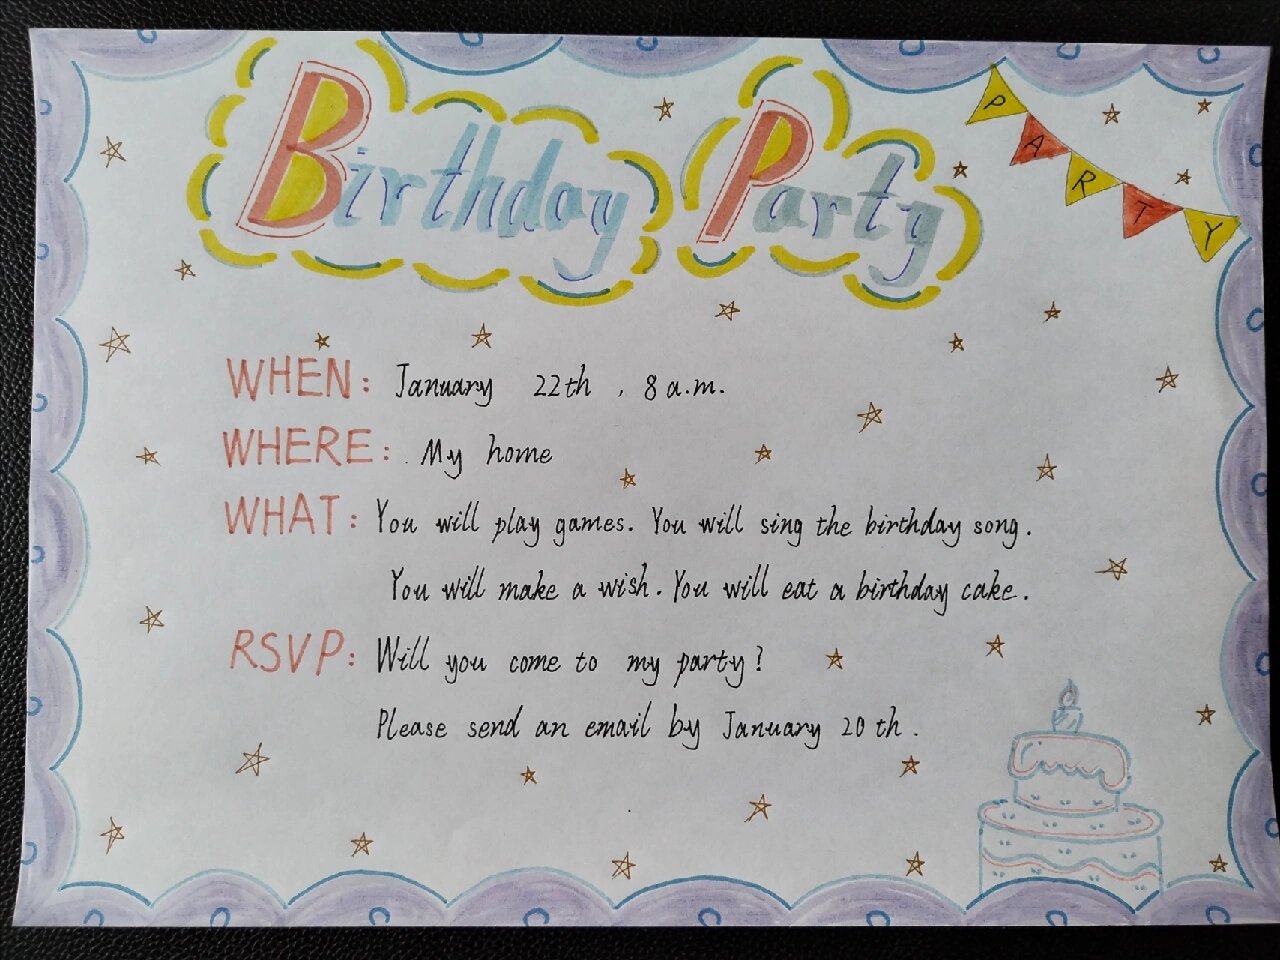 Birthday Party
PARTY
WHEN: January 22th , 8 a.m.
WHERE: My home
WHAT: You will play games. You will sing the birthday song.
You will make a wish. You will eat a birthday cake.
RSVP: Will you come to my party?
Please send an email by January 20 th .